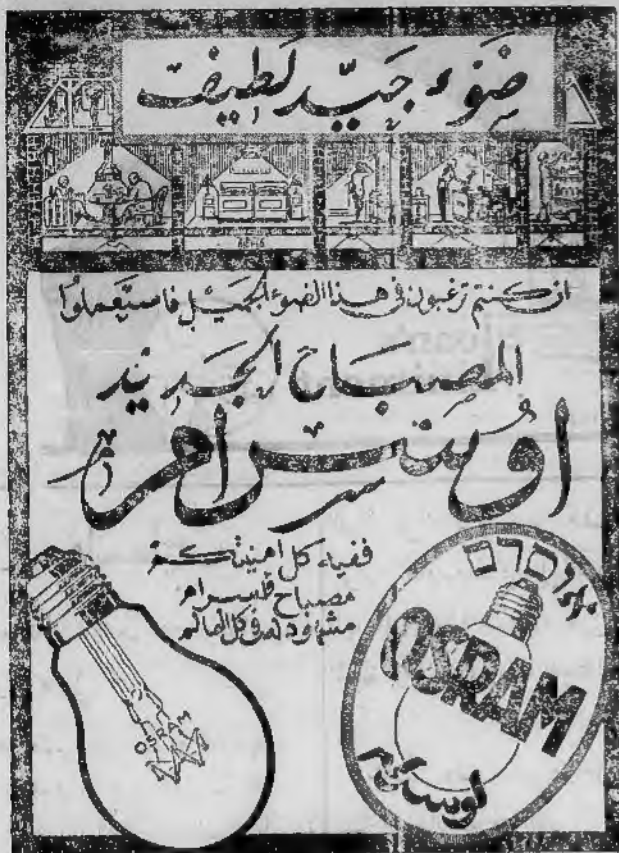 ضوء جيد لطيف
ان كنتم ترغبون في هذا الضوء الجميل فاستعملوا
المصباح الجديد
اوسرام
ففيه كل امنيتكم
مصباح
مشهود له في كل العالم
OSRAM
אוסרם
OSRAM
اوسرام